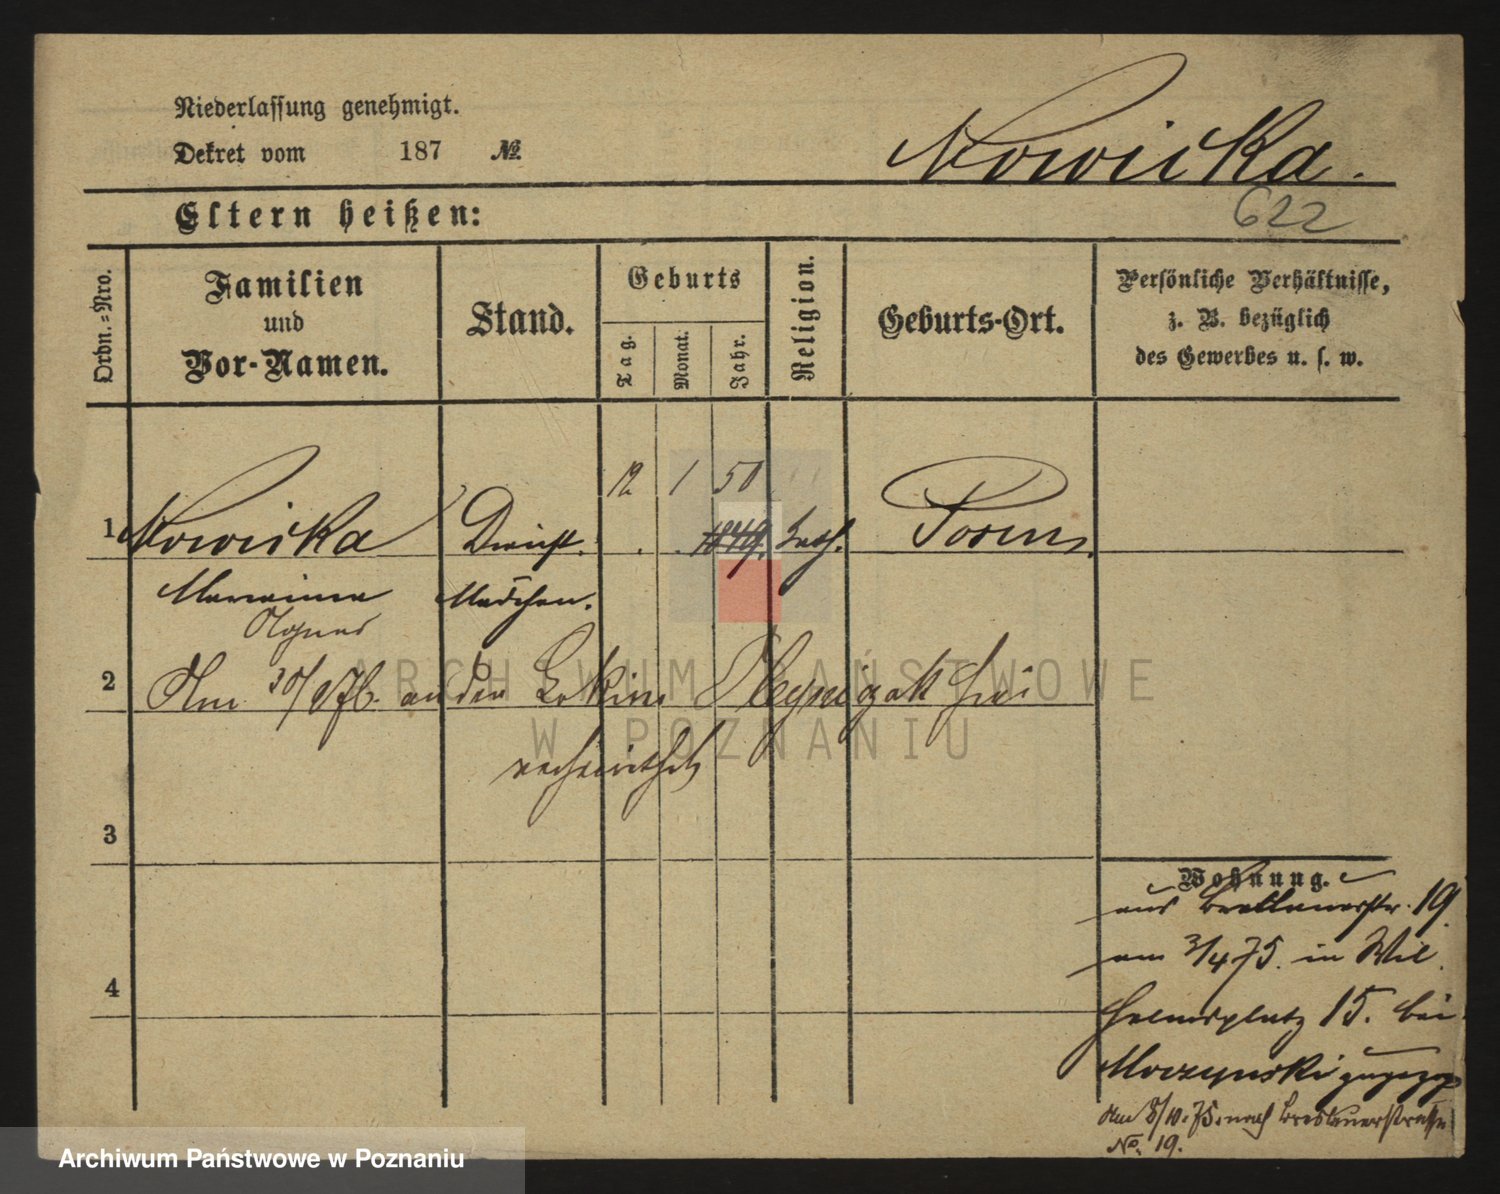 Niederlassung genehmigt.
Dekret vom 187 №
Nowicka.
622
Eltern heißen:
Ordn.-Nro.
Familien
und
Vor-Namen.
Stand.
Geburts
Tag.
Monat.
Jahr.
Religion.
Geburts-Ort.
Persönliche Verhältnisse,
z. B. bezüglich
des Gewerbes u. s. w.
12 1 50
1 Nowicka Dienst. 1849. kath. Posen.
Marianna Mädchen.
Agnes
2 Am 30/ 76. an den
ARCHIWUM PAŃSTWOWE
W POZNANIU
verheirathet
3
Wohnung.
aus Breslauerstr. 19
am 3/4 75. in Wil
4
helmsplatz 15. bei
Moczynski zugezogen
Am 8/10. 75. nach Breslauerstraße
No. 19.
Archiwum Państwowe w Poznaniu